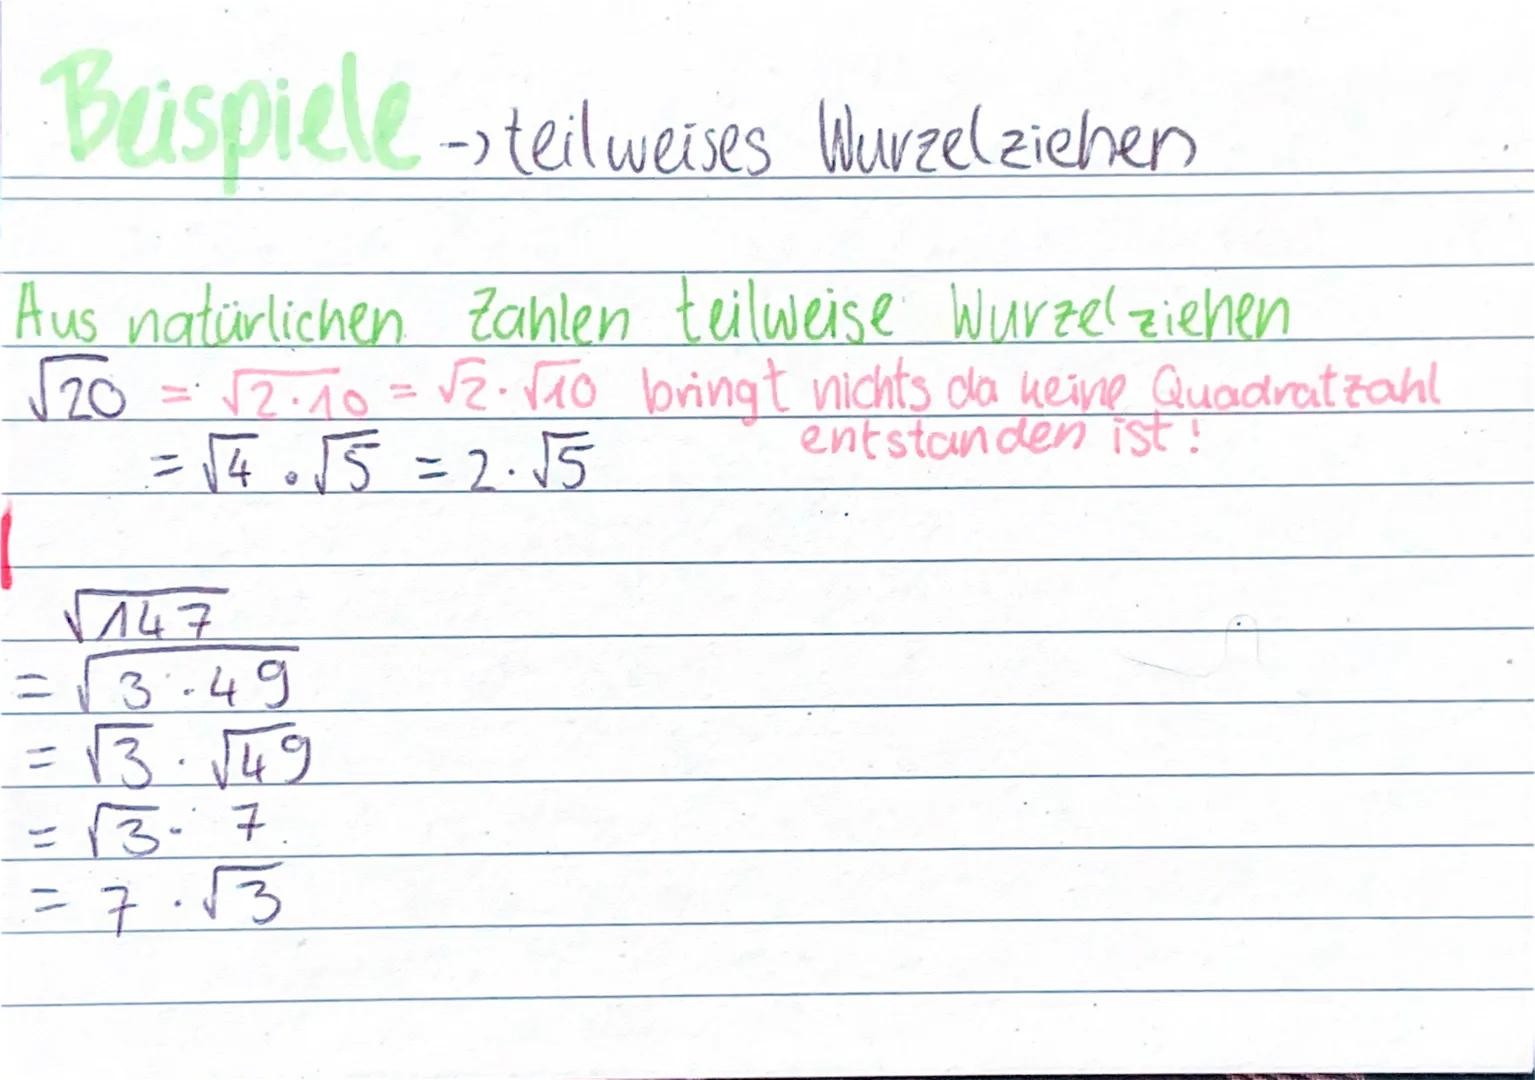 Beispiele -> teilweises Wurzelziehen
Aus natürlichen Zahlen teilweise Wurzel ziehen
√20 = √2·10 = √2·√10 bringt nichts da keine Quadratzahl
entstanden ist!
= √4·√5 = 2·√5
√147
= √3·49
= √3·√49
= √3·7
= 7·√3